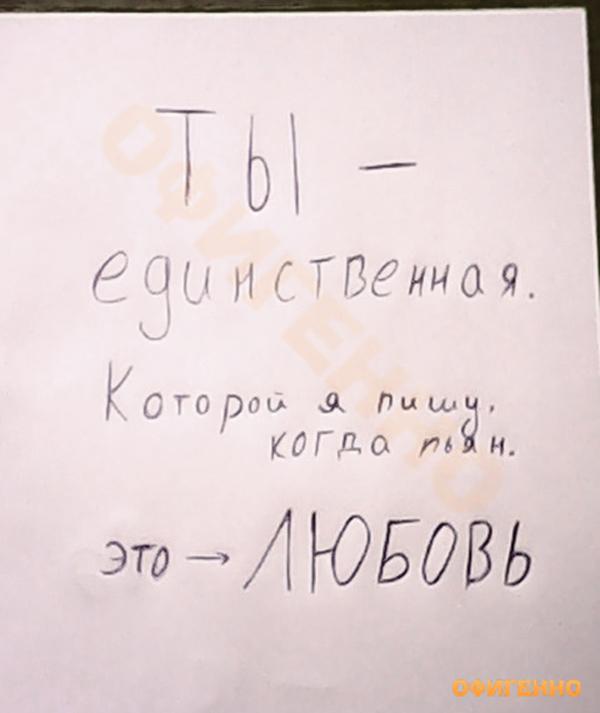 ТЫ —
единственная.
Которой я пишу,
когда пьян.
это → ЛЮБОВЬ
ОФИГЕННО
ОФИГЕННО